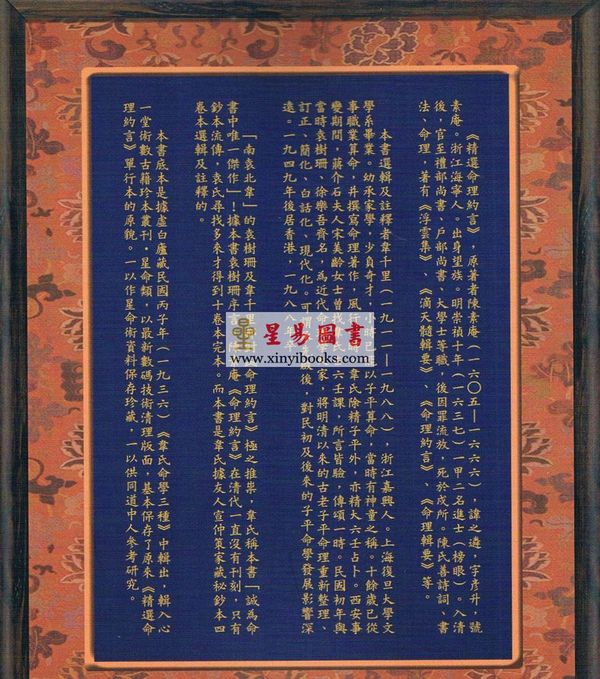 《精選命理約言》，原著者陳素庵（一六〇五—一六六六），諱之遴，字彥升，號
素庵。浙江海寧人。出身望族。明崇禎十年（一六三七）一甲二名進士（榜眼）。入清
後，官至禮部尚書、戶部尚書、大學士等職，後因罪流放，死於戍所。陳氏善詩詞、書
法、命理，著有《浮雲集》、《滴天髓輯要》、《命理約言》、《命理輯要》等。
本書選輯及註釋者韋千里（一九一一—一九八八），浙江嘉興人。上海復旦大學文
學系畢業。幼承家學，少負奇才，小時已以子平算命，當時有神童之稱。十餘歲已從
事職業算命，并撰寫命理著作，風行韋氏除精子平外，亦精大六壬占卜。西安事
變期間，蔣介石夫人宋美齡女士曾找六壬課，所言皆驗，傳頌一時。民國初年與
當時袁樹珊、徐樂吾齊名，為近代命家，將明清以來的古老子平命理重新整理、
訂正、簡化、白話化、現代化。可後，對民初及後來的子平命學發展影響深
遠。一九四九年後居香港，一九八八年
「南袁北韋」的袁樹珊及韋千里對命理約言》極之推崇，韋氏稱本書「誠為命
書中唯一傑作」！據本書袁樹珊序庵《命理約言》在清代一直沒有刊刻，只有
鈔本流傳，袁氏尋找多來才得到十卷本完本。而本書是韋氏據友人宣仲策家藏秘鈔本四
卷本選輯及註釋的。
本書底本是據虛白廬藏民國丙子年（一九三六）《韋氏命學三種》中輯出，輯入心
一堂術數古籍珍本叢刊・星命類，以最新數碼技術清理版面，基本保存了原來《精選命
理約言》單行本的原貌。一以作星命術資料保存珍藏，一以供同道中人參考研究。
星易圖書
www.xinyibooks.com